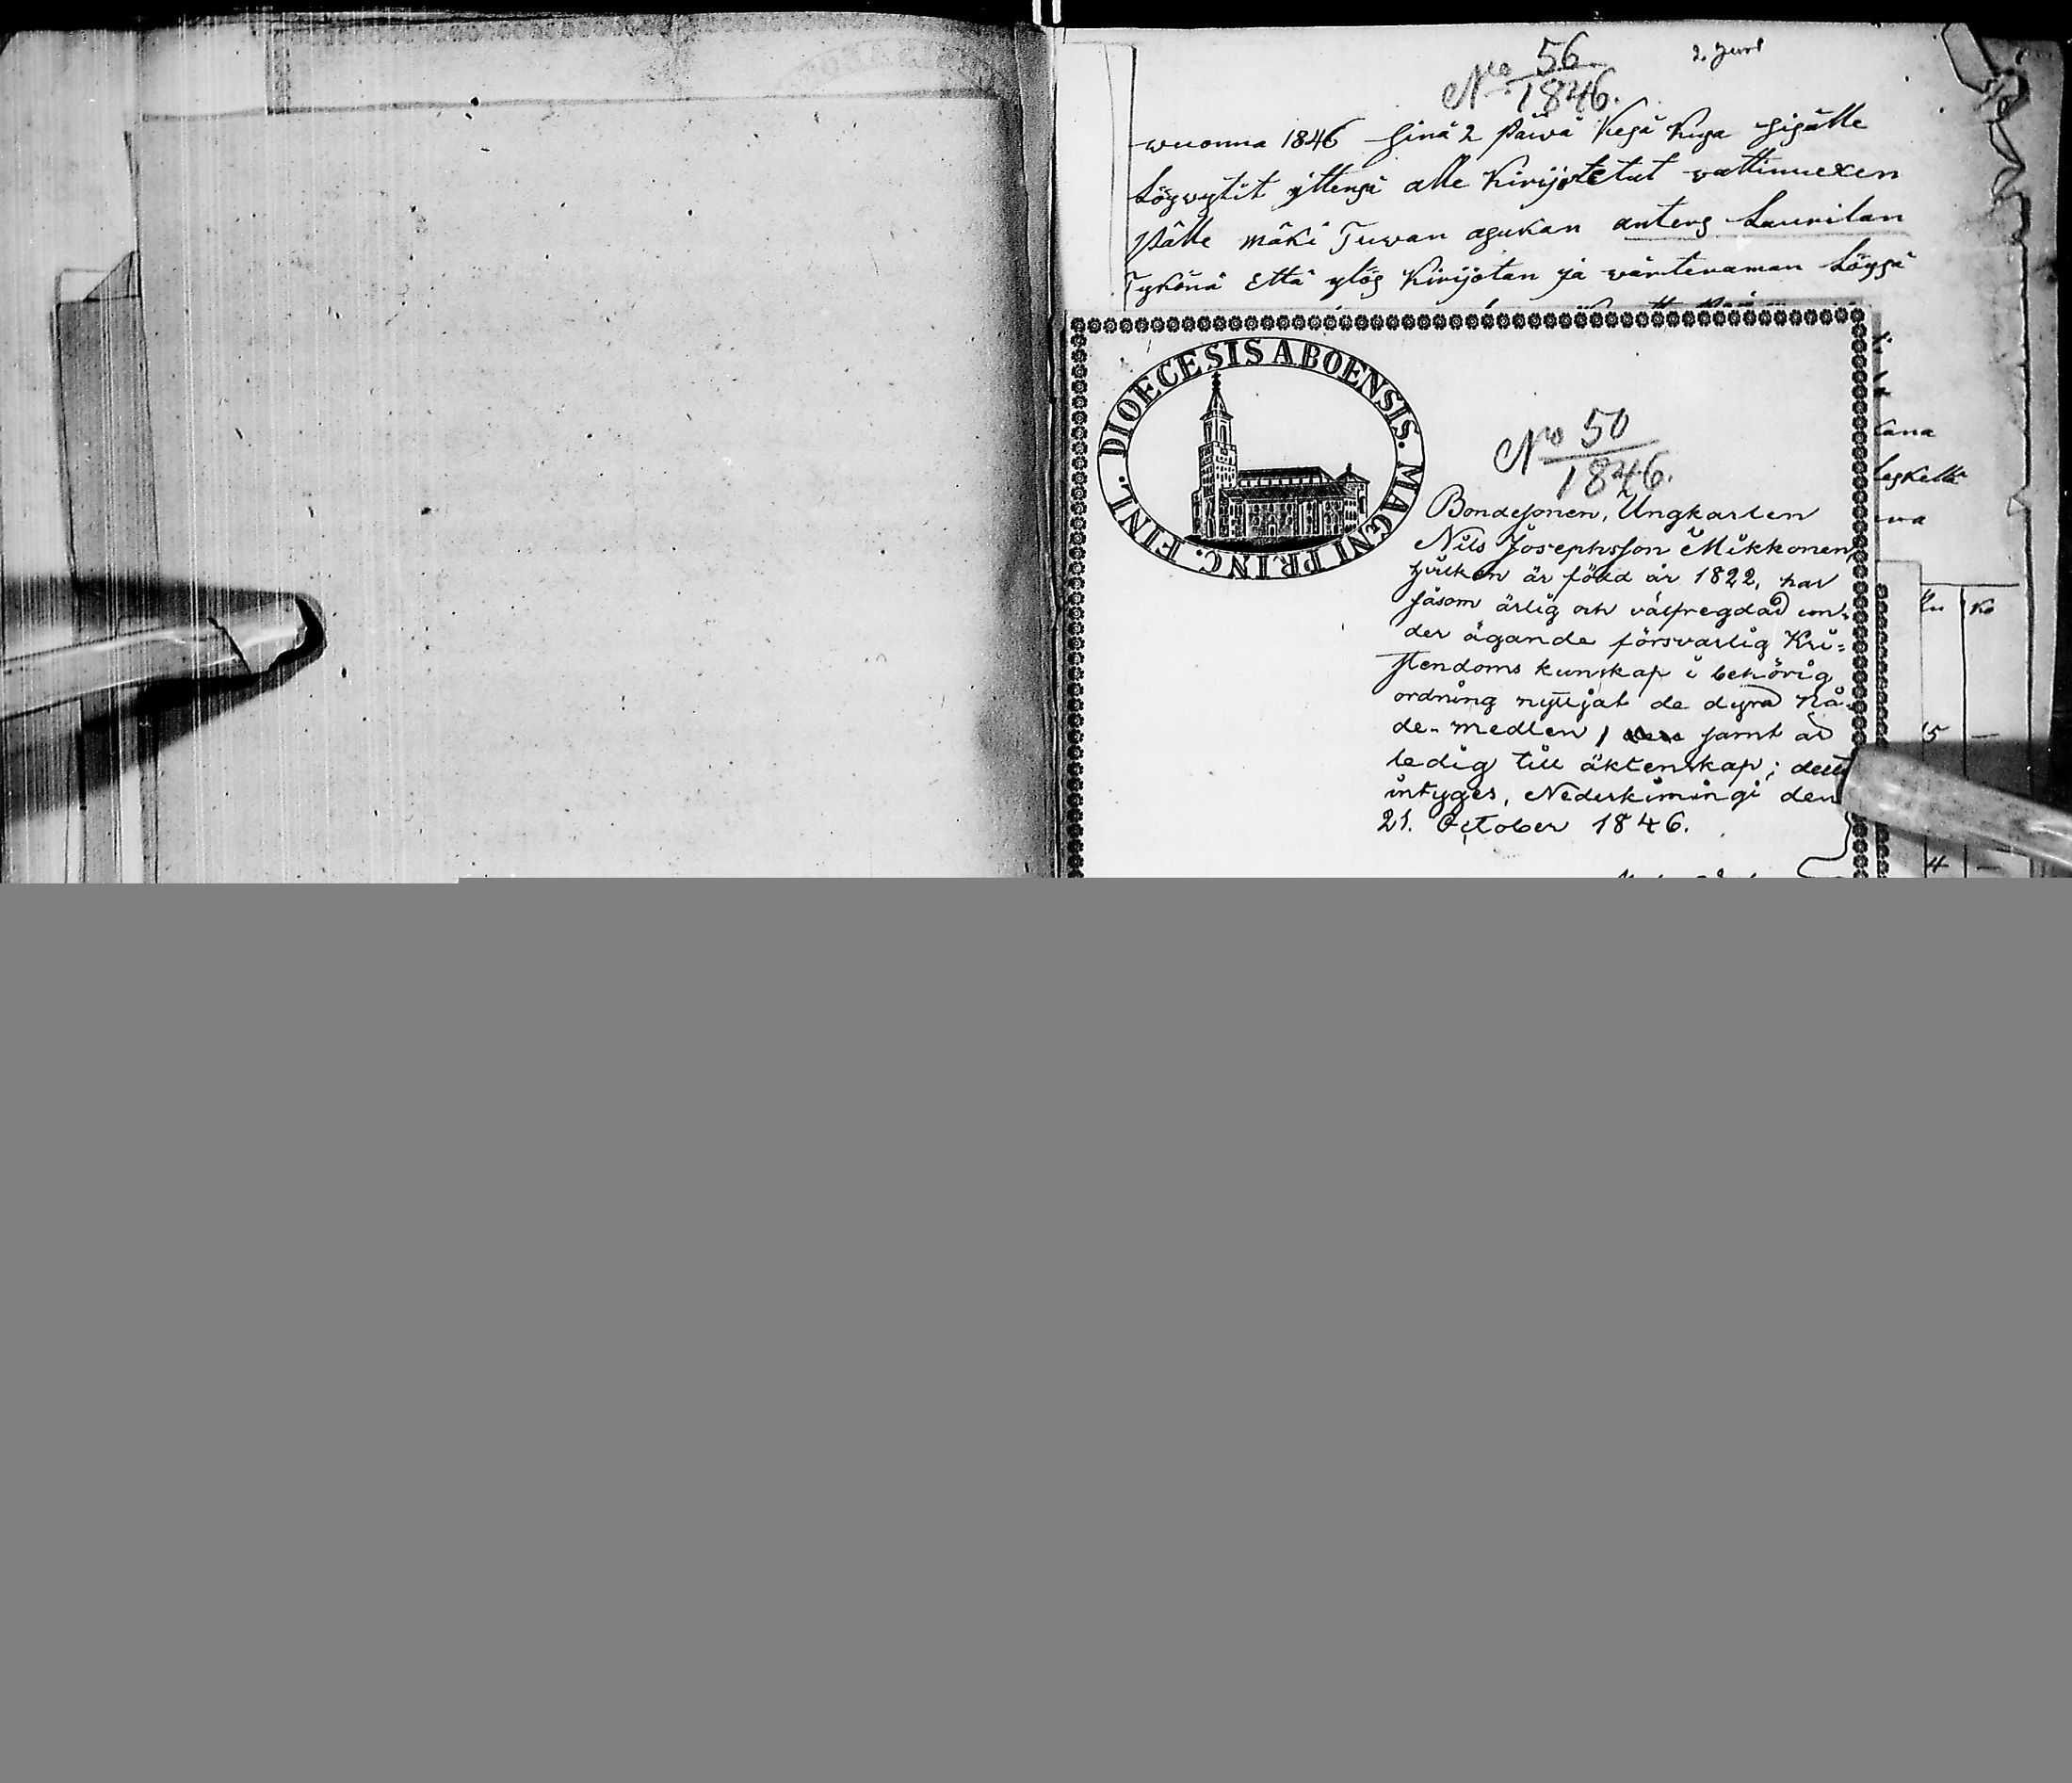 2. Juni
No 56
1846.
wuonna 1846 sinä 2 päiwä Kesä Kusa sisälle
Löywytit ittensä alle Kirijotetut wattimuexen
Pälle mäki Tuwan asukan anters Laurilan
Tykönä Että ylös Kirijotan ja wärteraman Löysä
DIOECESIS ABOENSIS. MAGNI PRINC. FINL.
No 50
1846.
Bondesonen, Ungkarlen
Nils Josephsson Mikkonen,
hvilken är född år 1822, har
såsom ärlig och välfregdad un-
der ägande försvarlig Kri-
stendoms kunskap i behörig
ordning nyttjat de dyra Nå-
de-medlen, samt är
ledig till äktenskap; detta
intyges, Nederkimingi den
21. October 1846.
lana
leskellä
wa
Ko
5 —
4 —